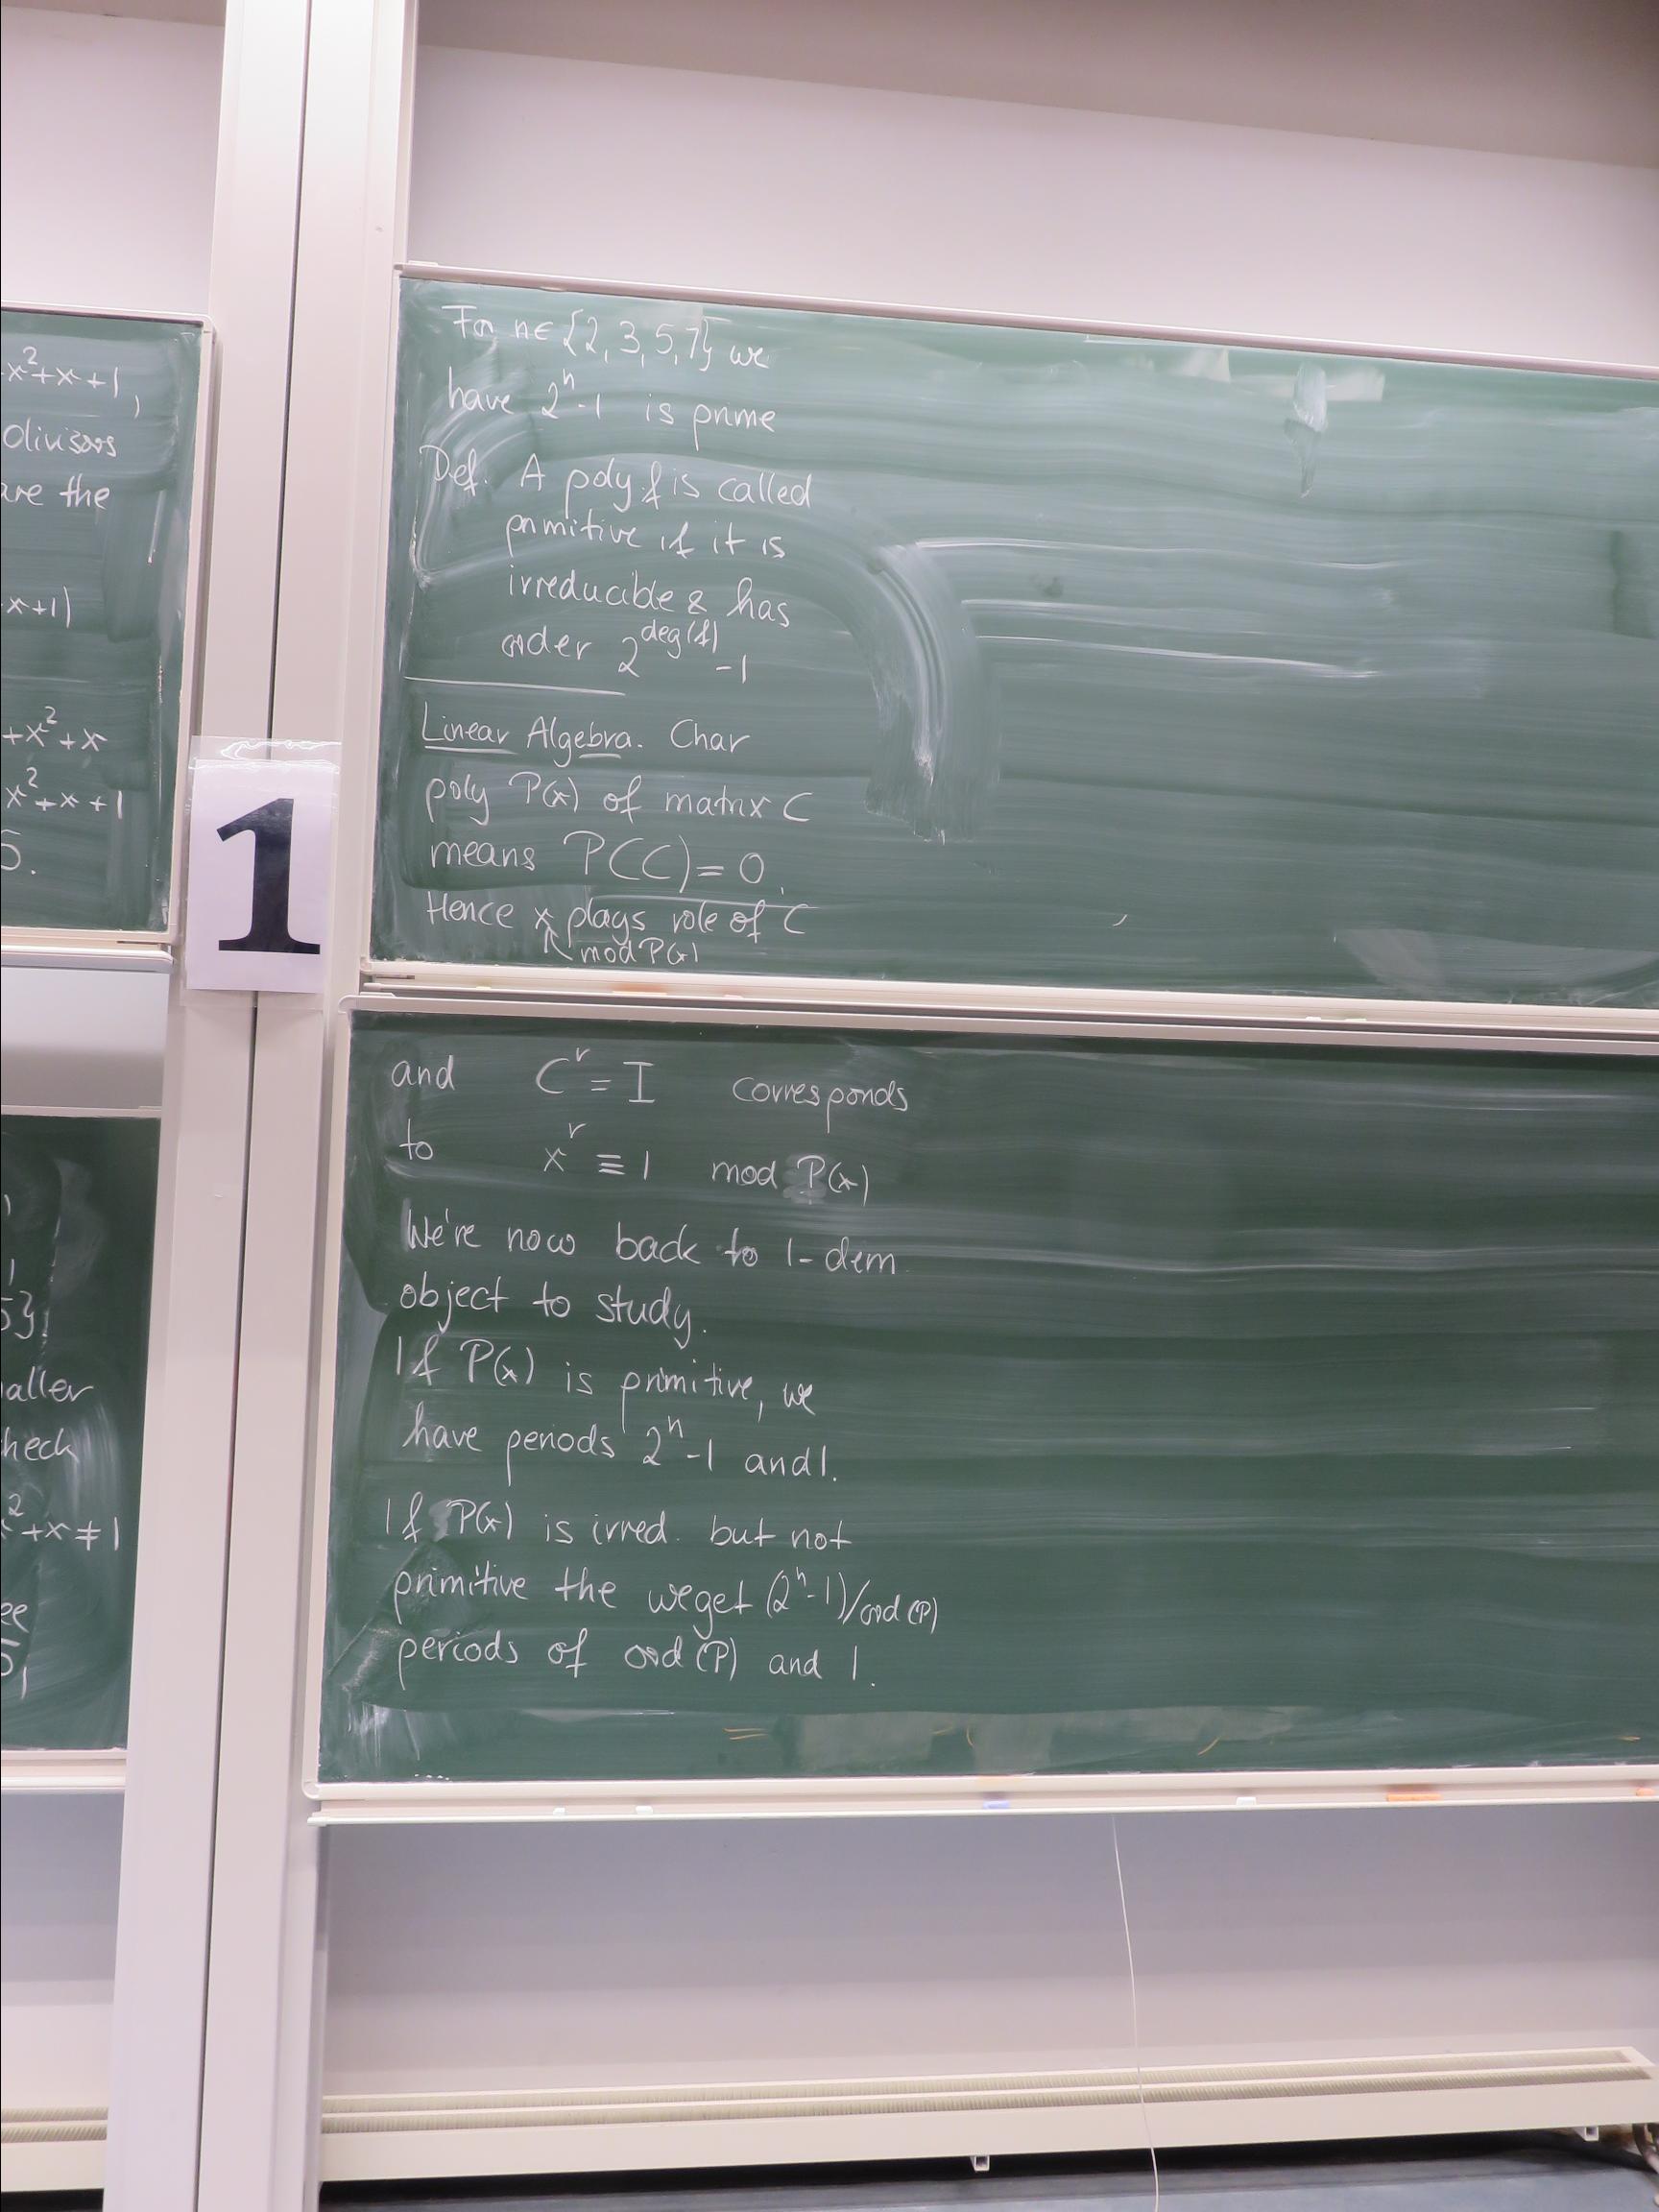 x²+x+1,
divisors
are the
x+1)
+x²+x
x²+x+1
5.
1
For n∈{2,3,5,7} we
have 2ⁿ-1 is prime
Def. A poly f is called
primitive if it is
irreducible & has
order 2^deg(f) -1
Linear Algebra. Char
poly P(x) of matrix C
means P(C)=0.
Hence x plays role of C
mod P(x)
and Cʳ = I corresponds
to xʳ ≡ 1 mod P(x)
We're now back to 1-dim
object to study.
If P(x) is primitive, we
have periods 2ⁿ-1 and 1.
If P(x) is irred. but not
primitive the we get (2ⁿ-1)/ord(P)
periods of ord(P) and 1.
aller
heck
²+x≠1